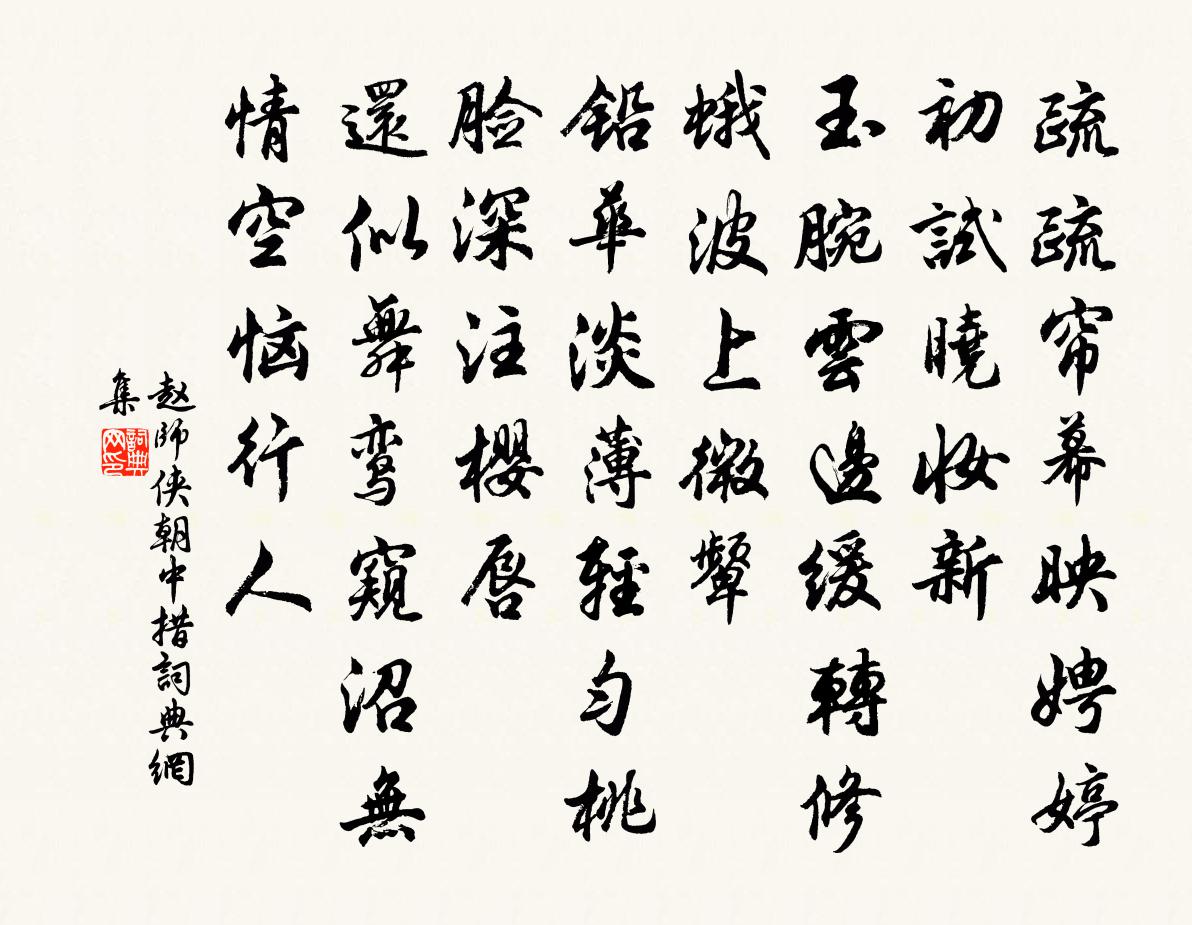 疏疏帘幕映娉婷
初試曉妝新
玉腕雲邊缓轉修
蛾波上微顰
鉛華淡薄輕匀桃
脸深注櫻唇
還似舞鸾窺沼無
情空恼行人
赵師侠朝中措詞典網
集
詞典网印